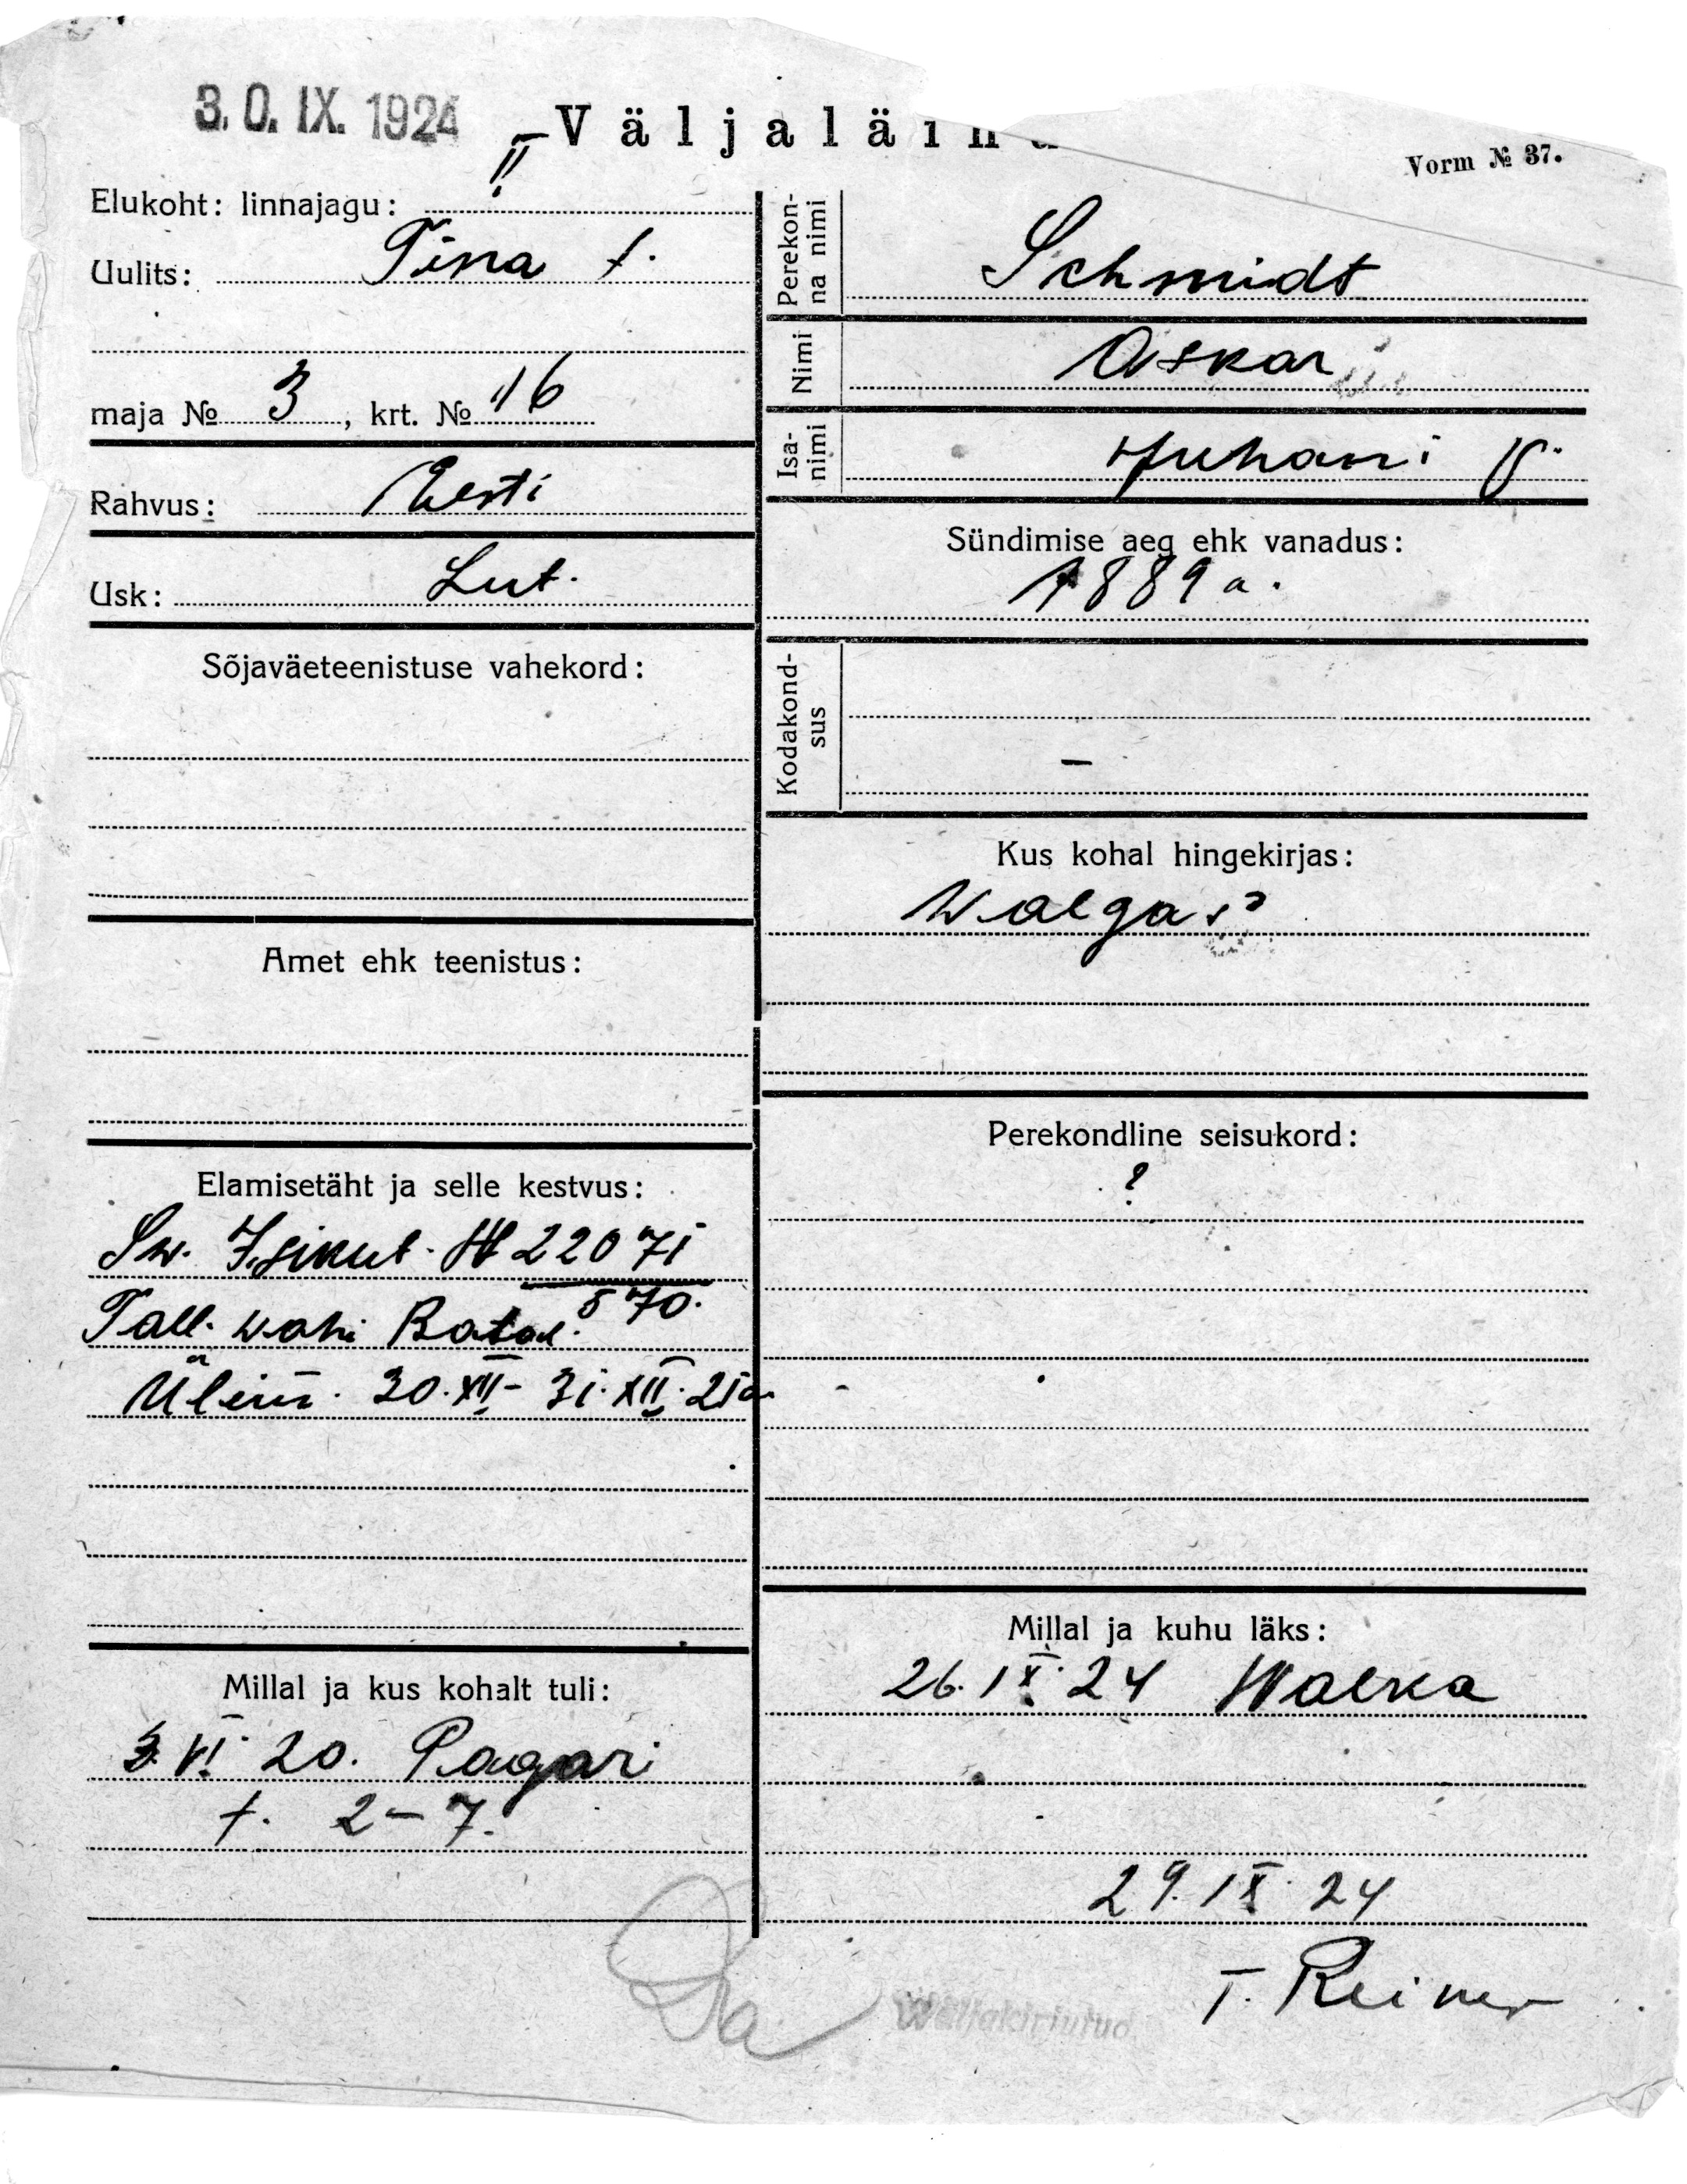 3. 0. IX. 1924
Väljaläinu
Vorm № 37.
Elukoht: linnajagu: II
Uulits: Tina t.
maja № 3, krt. № 16
Rahvus: Eesti
Usk: Lut.
Sõjaväeteenistuse vahekord:
Amet ehk teenistus:
Elamisetäht ja selle kestvus:
Sw. Isikut. № 22071
570.
Tall. wahi Batal.
Ülem. 30.XII - 31.XII.21a
Millal ja kus kohalt tuli:
3.VI 20. Pagari
t. 2-7.
Perekonna nimi Schmidt
Nimi Oskar
Isanimi Juhani p.
Sündimise aeg ehk vanadus:
1889 a.
Kodakondsus
-
Kus kohal hingekirjas:
Walgas?
Perekondline seisukord:
?
Millal ja kuhu läks:
26.IX.24 Walka
29.IX.24
T. Reiner
Wäljakirjutud